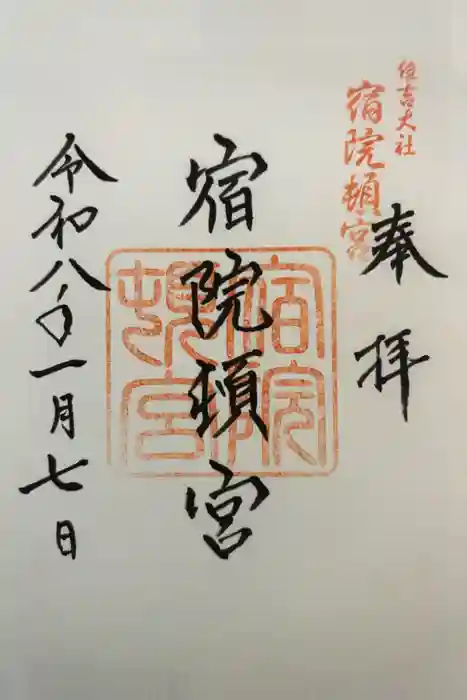 住吉大社
宿院頓宮
奉拝
宿院頓宮
宿院頓宮
令和八年一月七日